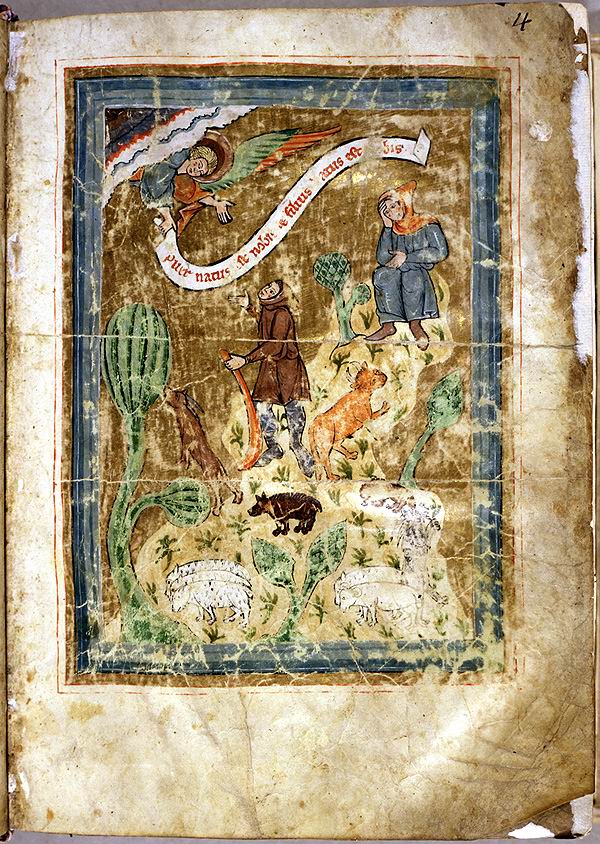 4
puer natus est nobis et filius atus est bis